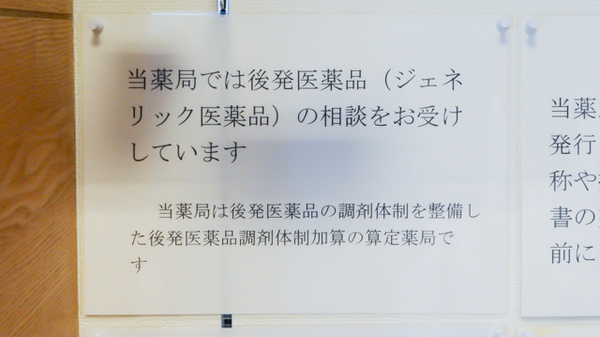 当薬局では後発医薬品（ジェネ
リック医薬品）の相談をお受け
しています
当薬局は後発医薬品の調剤体制を整備し
た後発医薬品調剤体制加算の算定薬局で
す
当薬
発行
称や
書の
前に